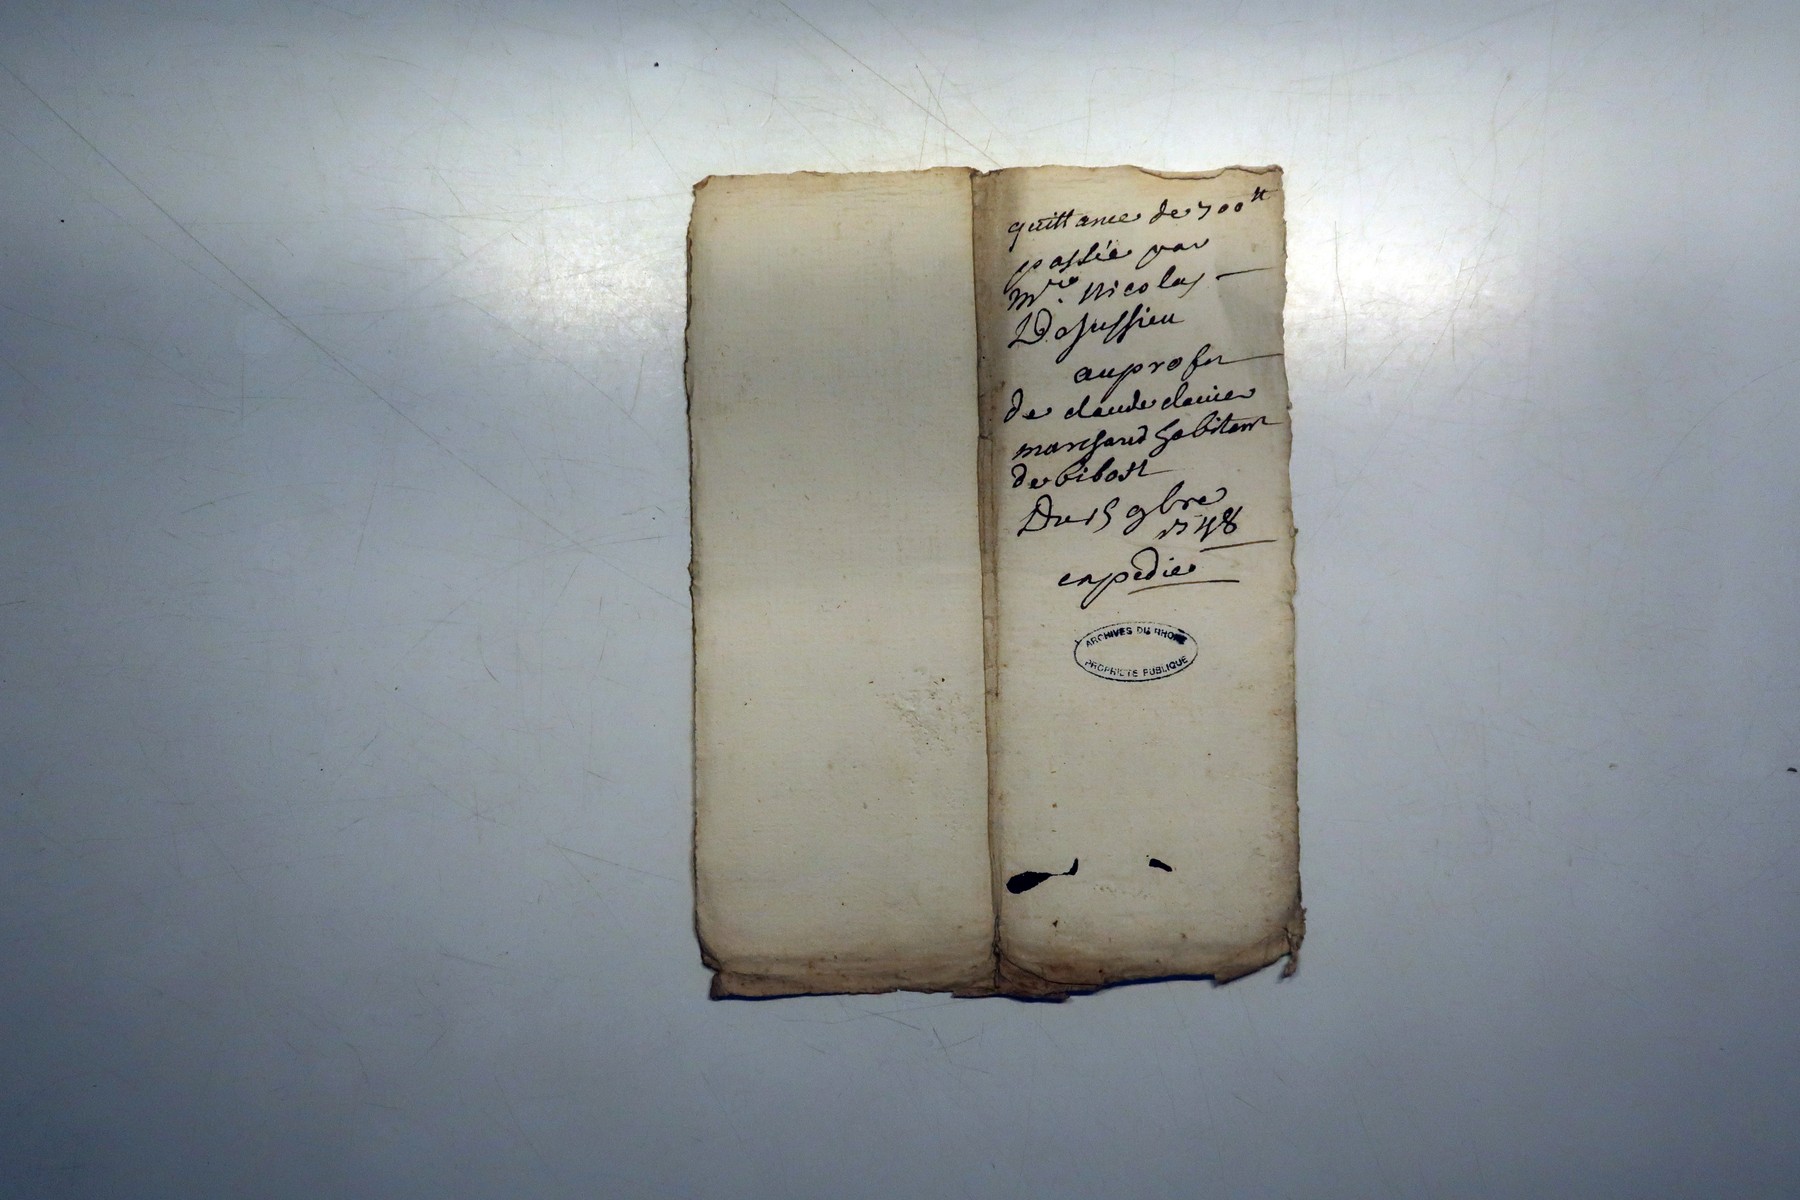 quittance de 700tt
passée par
Mre. Nicolas
Dejussieu
au profit
de claude clavier
marchand habitant
de bibost
Du 15 9bre
1748
expediée
ARCHIVES DU RHONE
PROPRIETE PUBLIQUE